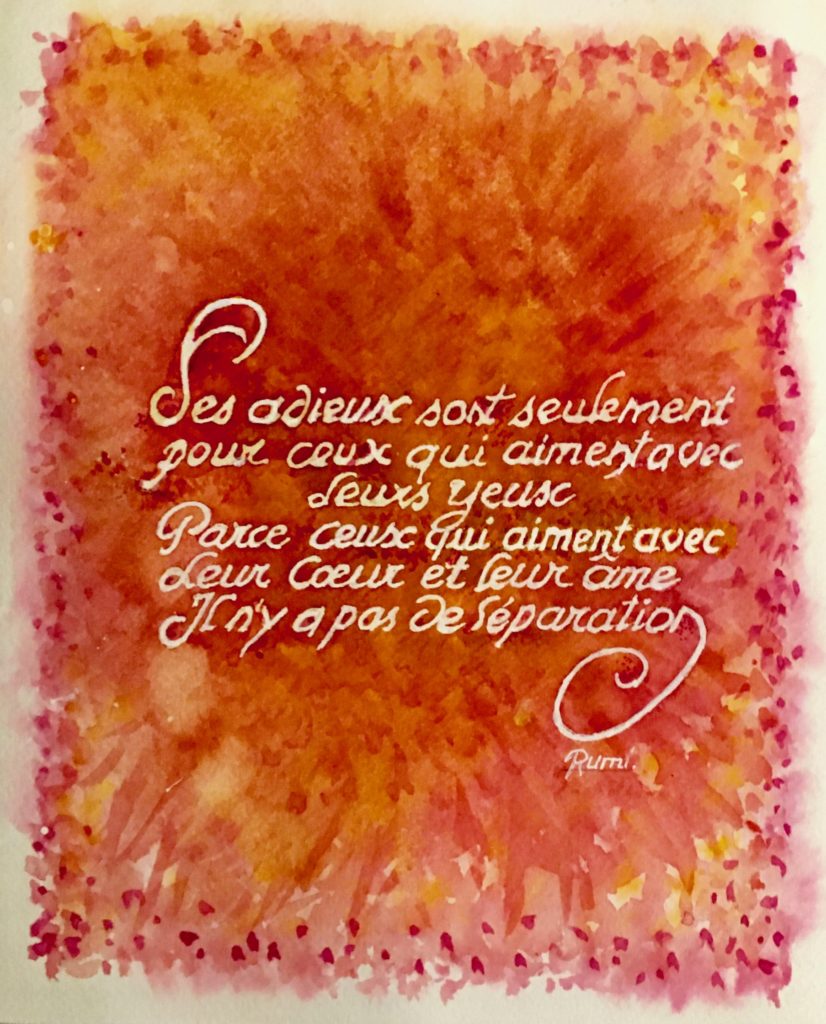 Les adieux sont seulement
pour ceux qui aiment avec
leurs yeux
Parce ceux qui aiment avec
Leur Cœur et leur âme
Il n'y a pas de séparation
Rumi.